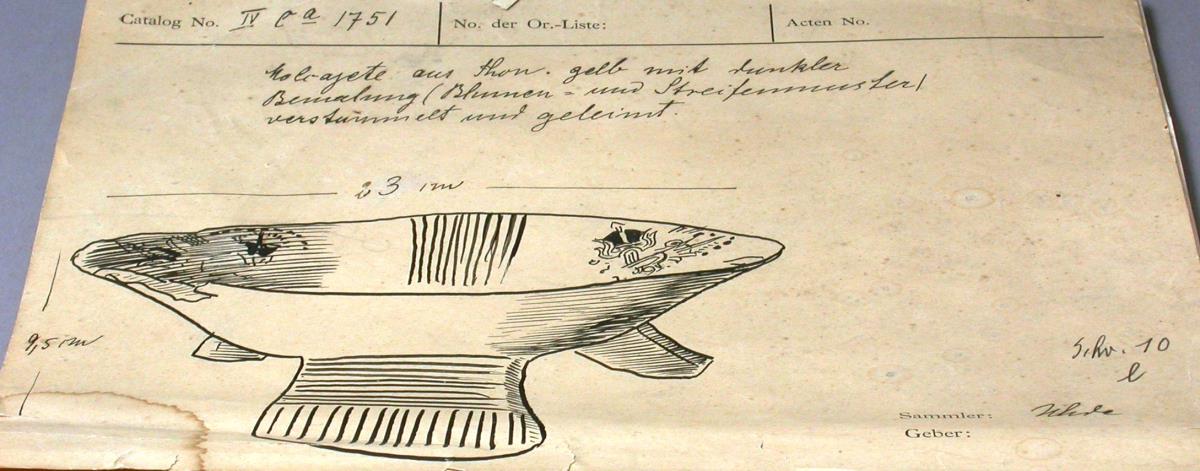 Catalog No. IV Ca 1751 No. der Or.-Liste: Acten No.
Molcajete aus Thon. gelb mit dunkler
Bemalung (Blumen- und Streifenmuster)
verstümmelt und geleimt.
23 cm
9,5 cm
Schr. 10
l
Sammler: Uhde
Geber: